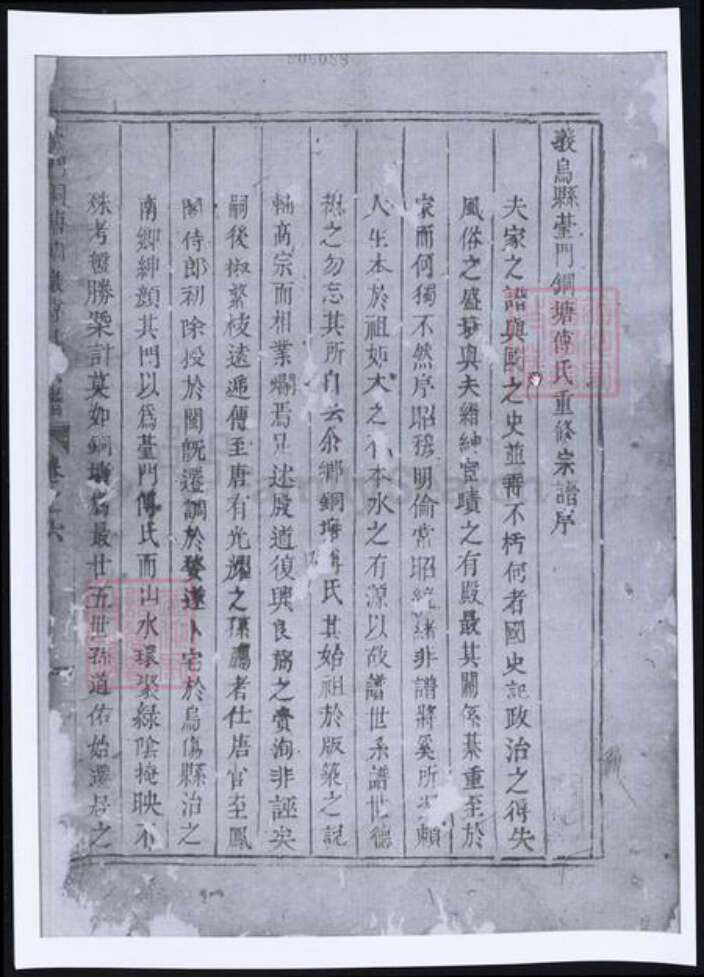 義烏縣臺門銅塘傅氏重修宗譜序
夫家之譜與國之史並壽不朽何者國史記政治之得失
風俗之盛衰與夫縉紳宦蹟之有殿最其關係綦重至於
家而何獨不然序昭穆明倫常昭統緒非譜將奚所賴
人生本於祖如木之有本水之有源以故譜世系譜世德
之勿忘其所自云余鄉銅塘傅氏其始祖於版築之說
高宗而相業爛焉兄述殷道復興良弼之賚洵非誣矣
嗣後椒繁枝遠遞傳至唐有光耀之孫者仕唐官至鳳
閣侍郎初除授於閩既遷調於婺遂卜宅於烏傷縣治之
南鄉紳顏其門以為臺門傅氏而山水環聚綠陰掩映不
殊考盤勝槩計莫如銅塘為最廿五世孫道佑始遷居之